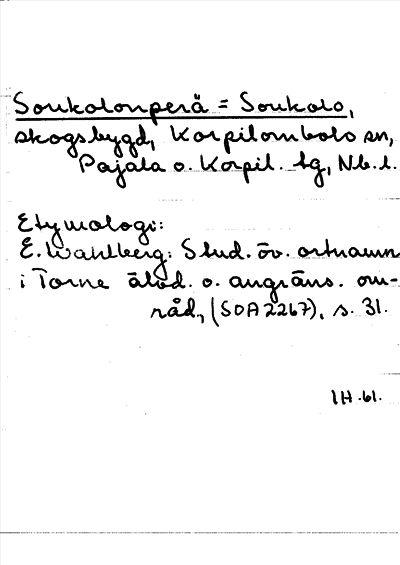 Soukolonperä = Soukolo,
skogsbygd, Korpilombolo sn,
Pajala o. Korpil. tg, Nb. l.
Etymologi:
E. Wahlberg: Stud. öv. ortnamn
i Torne älvd. o. angräns. om-
råd, (SOA 2267), s. 31.
IH.61.